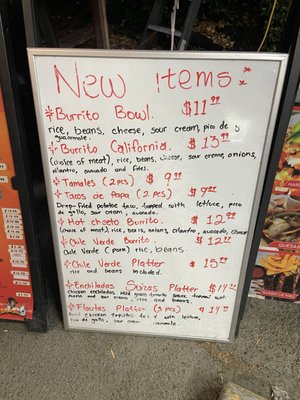 New items:
*Burrito Bowl. $11⁹⁹
rice, beans, cheese, sour cream, pico de g
guacamole.
*Burrito California. $13⁹⁹
(choice of meat), rice, beans, cheese, sour creme, onions,
cilantro, avocado and fries.
*Tamales (2 pcs) $9⁹⁹
*Tacos de Papa (2 pcs) $9⁹⁹
Deep-fried potatoe taco, topped with lettuce, pico
de gallo, sour cream, avocado.
*Hot cheeto Burrito. $12⁹⁹
(choice of meat), rice, beans, onions, cilantro, avocado, cheese
*Chile Verde Burrito. $12⁹⁹
Chile Verde (pork) rice, beans.
*Chile Verde Platter $15⁹⁹
rice and beans included.
*Enchiladas Suizas Platter $14⁹⁹
chicken enchiladas, green tomato sauce topped
cheese and sour cream, rice and beans.
*Flautas Platter (3 pcs) $14⁹⁹
chicken taquitos with lettuce,
pico de gallo, sour cream
QUESA